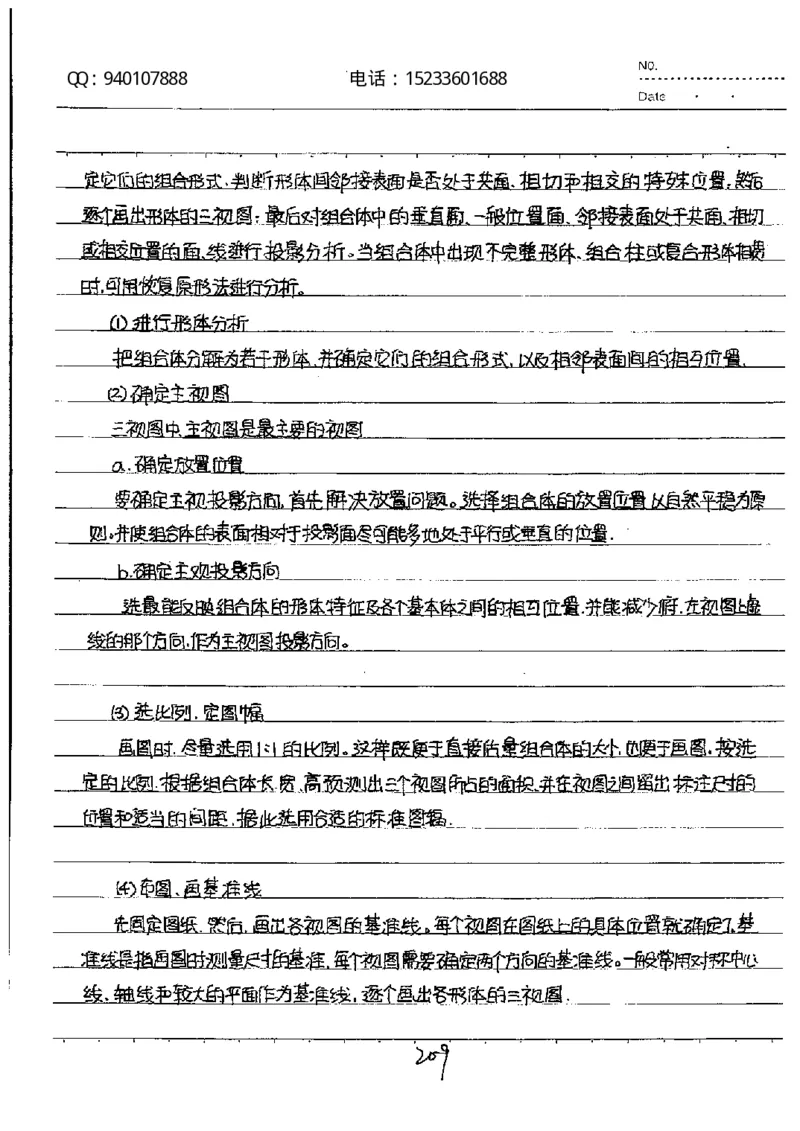 NO.
QQ：940107888 电话：15233601688
Date
定它们的组合形式、判断形体间邻接表面是否处于共面、相切和相交的特殊位置；然后
逐个画出形体的三视图；最后对组合体中的垂直面、一般位置面、邻接表面处于共面、相切
或相交位置的面、线进行投影分析。当组合体中出现不完整形体、组合柱或复合形体相贯
时，可用恢复原形法进行分析。
(1) 进行形体分析
把组合体分解为若干形体，并确定它们的组合形式，以及相邻表面间的相互位置，
(2) 确定主视图
三视图中，主视图是最主要的视图
a. 确定放置位置
要确定主视投影方向，首先解决放置问题。选择组合体的放置位置以自然平稳为原
则。并使组合体的表面相对于投影面尽可能多地处于平行或垂直的位置．
b. 确定主观投影方向
选最能反映组合体的形体特征及各个基本体之间的相互位置．并能减少俯．左视图上虚
线的那个方向．作为主视图投影方向。
(3) 选比例．定图幅
画图时．尽量选用1:1的比例。这样既便于直接估量组合体的大小，也便于画图．按选
定的比例．根据组合体长、宽、高预测出三个视图所占的面积，并在视图之间留出标注尺寸的
位置和适当的间距．据此选用合适的标准图幅．
(4) 布图、画基准线
先固定图纸．然后．画出各视图的基准线。每个视图在图纸上的具体位置就确定了．基
准线是指画图时测量尺寸的基准，每个视图需要确定两个方向的基准线。一般常用对称中心
线．轴线和较大的平面作为基准线，逐个画出各形体的三视图．
209